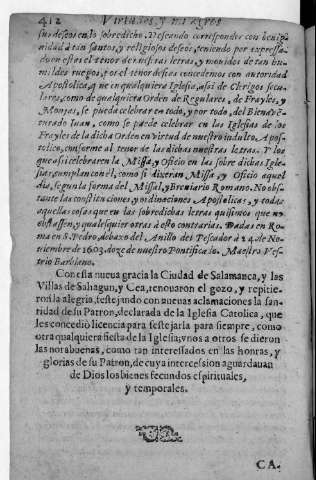 412 Virtudes, y milagros
sus deseos en lo sobredicho. Y deseando corresponder con benig-
nidad à tan santos, y religiosos deseos, teniendo por expressa-
do en estas el tenor de vuestras letras, y movidos de tan hu-
mildes ruegos, por el tenor destas concedemos con autoridad
Apostolica, que en qualquiera Iglesia, assi de Clerigos secu-
lares, como de qualquiera Orden de Regulares, de Frayles, y
Monjas, se pueda celebrar en todo, y por todo, del Bienaven-
turado Iuan, como se puede celebrar en las Iglesias de los
Frayles de la dicha Orden en virtud de nuestro indulto, Apos-
tolico, conforme al tenor de las dichas nuestras letras. Y los
que assi celebraren la Missa, y Oficio en las sobre dichas Igle-
sias, cumplan con el, como si dixeran Missa, y Oficio aquel
dia, segun la forma del Missal, y Breviario Romano. No obs-
tante las constituciones, y ordinaciones Apostolicas, y todas
aquellas cosas que en las sobredichas letras quisimos que no
obstassen, y qualesquier otras à esto contrarias. Dadas en Ro-
ma en S. Pedro, debaxo del Anillo del Pescador à 24. de No-
viembre de 1603. doze de nuestro Pontificado. Maestro Ves-
trio Barbiano.
Con esta nueva gracia la Ciudad de Salamanca, y las
Villas de Sahagun, y Cea, renovaron el gozo, y repitie-
ron la alegria, festejando con nuevas aclamaciones la san-
tidad de su Patron, declarada de la Iglesia Catolica, que
les concediò licencia para festejarla para siempre, como
otra qualquiera fiesta de la Iglesia; vnos a otros se dieron
las norabuenas, como tan interessados en las honras, y
glorias de su Patron, de cuya intercession aguardauan
de Dios los bienes fecundos espirituales,
y temporales.
CA.